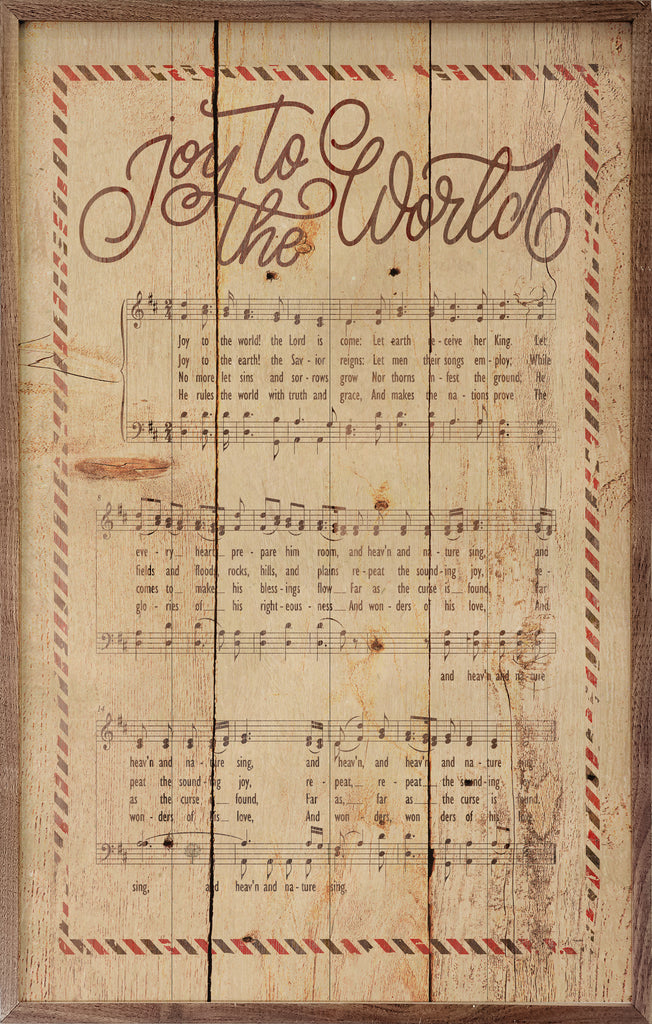 Joy to
the World
Joy to the world! the Lord is come: Let earth re-ceive her King. Let
Joy to the earth! the Sav-ior reigns: Let men their songs em-ploy; While
No more let sins and sor-rows grow Nor thorns in-fest the ground; He
He rules the world with truth and grace, And makes the na-tions prove The
8
eve-ry heart pre-pare him room, and heav'n and na-ture sing, and
fields and floods, rocks, hills, and plains re-peat the sound-ing joy, re-
comes to make his bless-ings flow Far as the curse is found, far
glo-ries of his right-eous-ness And won-ders of his love, And
and heav'n and na-ture
14
heav'n and na-ture sing, and heav'n, and heav'n, and na-ture sing.
peat the sound-ing joy, re-peat, re-peat the sound-ing joy.
as the curse is found, Far as, far as the curse is found.
won-ders of his love, And won ders, won ders of his love.
sing, and heav'n and na-ture sing.